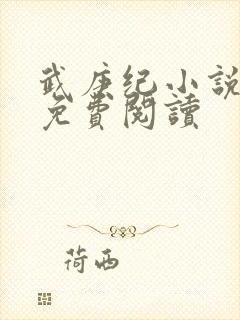 武庚纪小說
免費閱讀
荷西